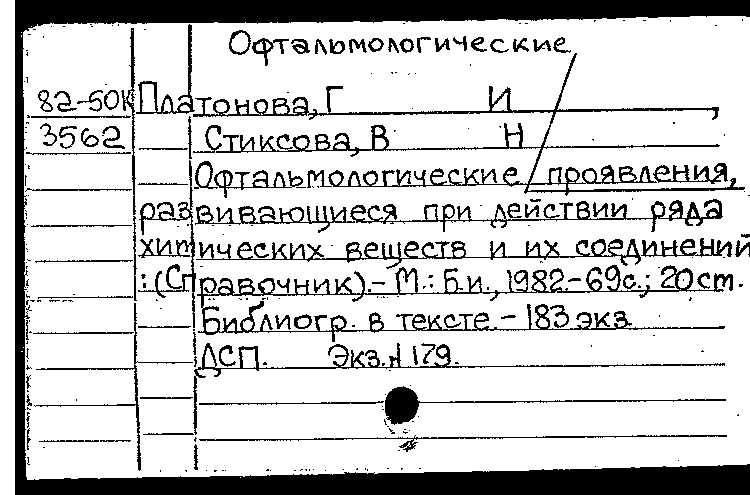 Офтальмологические
82-50К Платонова, Г И ,
3562 Стиксова, В Н
Офтальмологические проявления,
развивающиеся при действии ряда
химических веществ и их соединений
: (Справочник).- М.: Б.и., 1982.-69с.; 20 ст.
Библиогр. в тексте. - 183 экз.
ДСП. Экз.№ 179.